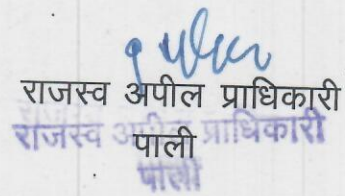 राजस्व अपील प्राधिकारी
राजस्व अपील प्राधिकारी
पाली
पाली